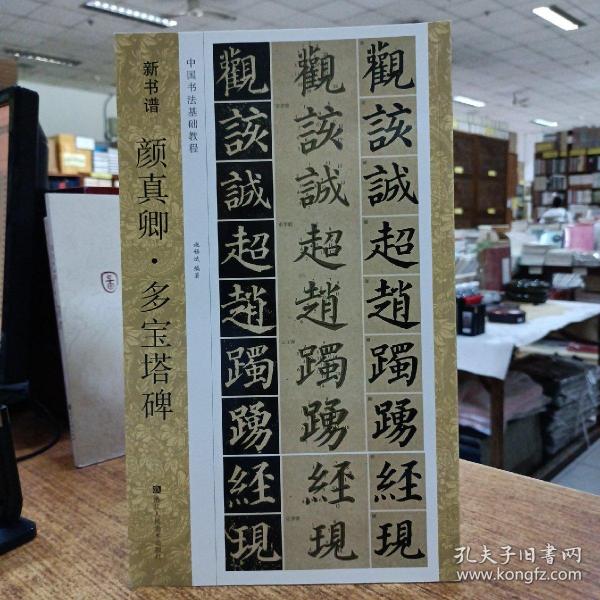 新书谱
颜真卿·多宝塔碑
中国书法基础教程
编著
觀 觀 觀
該 該 該
誠 誠 誠
超 超 超
趙 趙 趙
躅 躅 躅
踴 踴 踴
經 經 經
現 現 現
孔夫子旧书网
www.kongfz.com